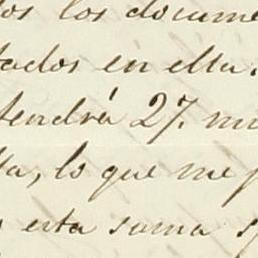 los los docume
tados en ella.
tendrá 27. mi
ta, lo que me p
esta suma s